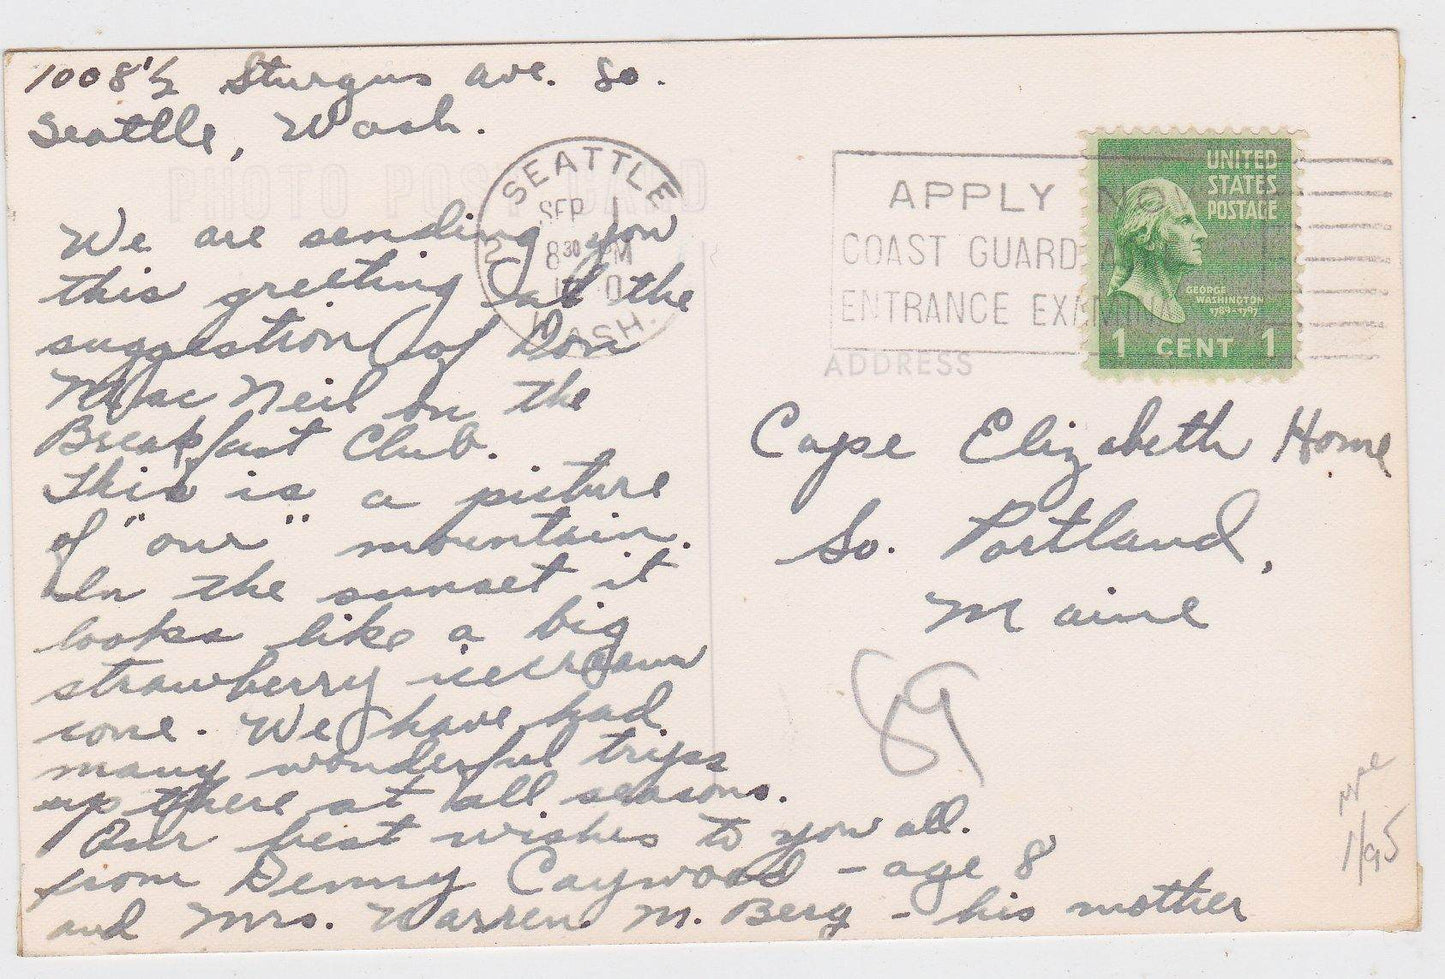 1008½ Sturgus ave. So.
Seattle, Wash.
PHOTO POST CARD
SEATTLE
SEP 1
8 30 PM
WASH.
APPLY NO
COAST GUARD A
ENTRANCE EXAMINA
UNITED
STATES
POSTAGE
GEORGE
WASHINGTON
1789-1797
1 CENT 1
ADDRESS
We are sending you
this greeting at the
suggestion of Don
MacNeil on the
Breakfast Club.
This is a picture
of "our" mountain.
In the sunset it
looks like a big
strawberry icecream
cone. We have had
many wonderful trips
up there at all seasons.
Our best wishes to you all.
from Denny Caywood - age 8
and Mrs. Warren M. Berg - his mother
Cape Elizabeth Home
So. Portland,
Maine
89
1/95